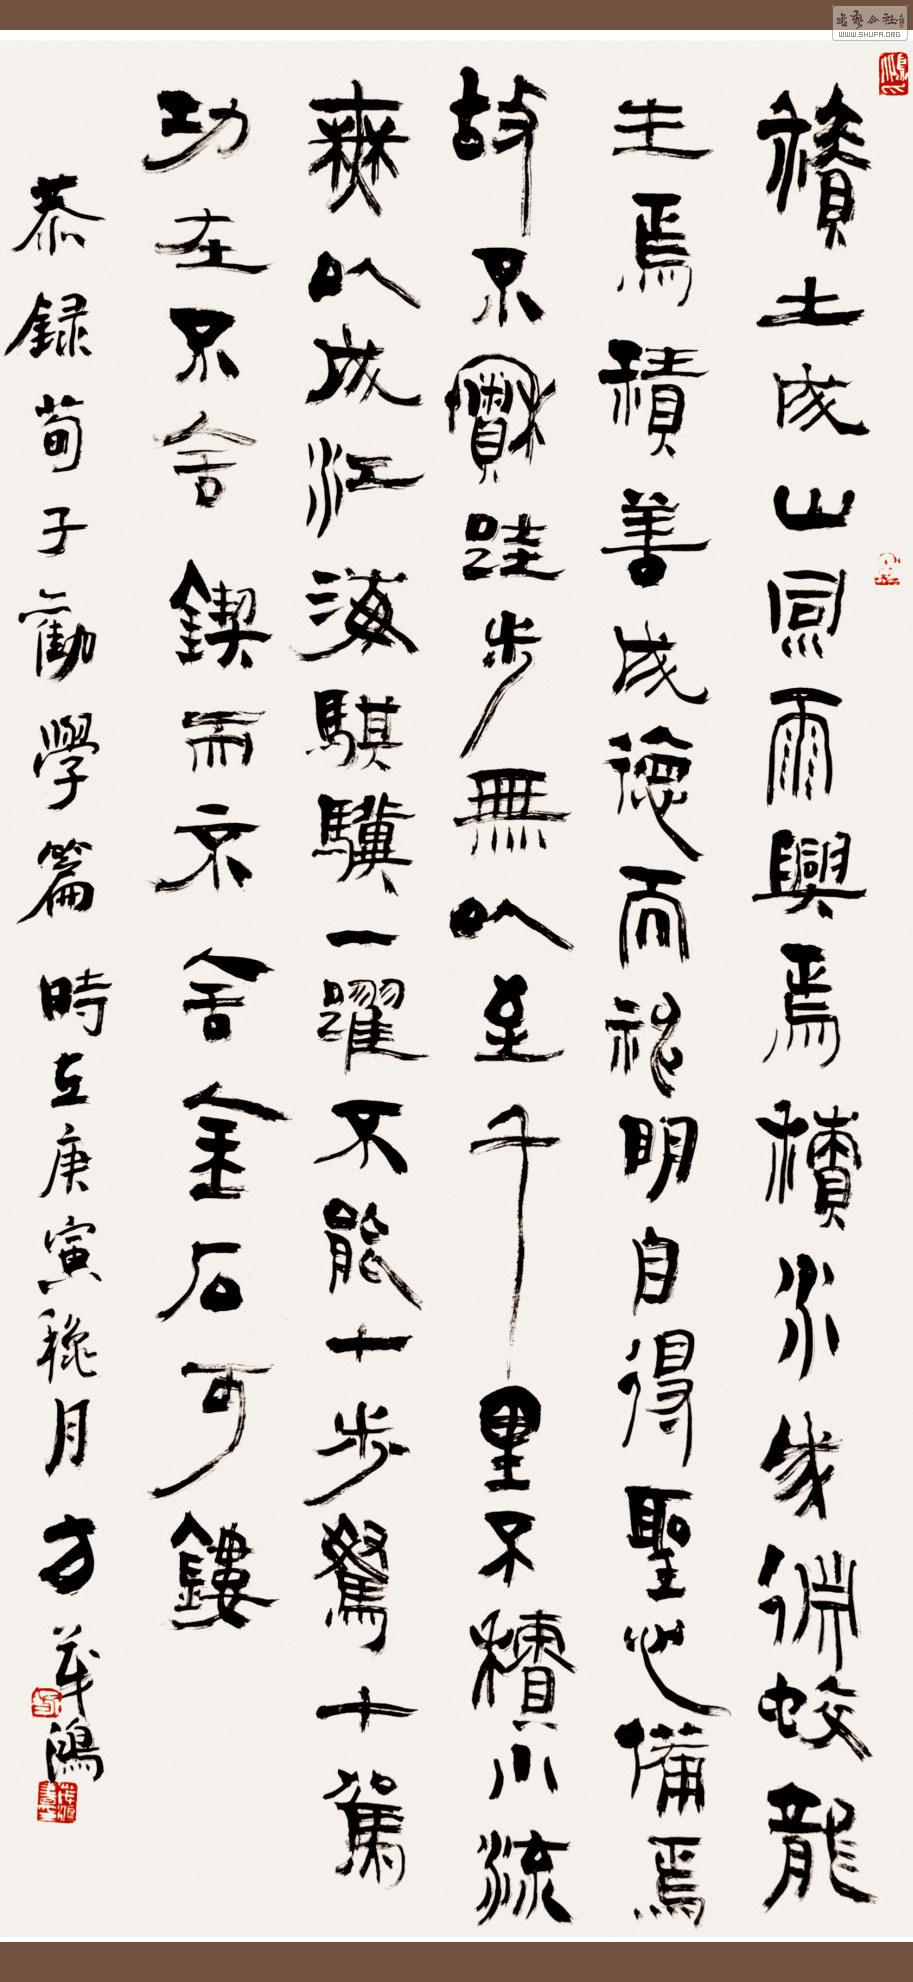 積土成山風雨興焉積水成淵蛟龍
生焉積善成德而神明自得聖心備焉
故不積跬步無以至千里不積小流
無以成江海騏驥一躍不能十步駑十駕
功在不舍鍥而不舍金石可鏤
恭録荀子勸學篇時在庚寅穐月方茂鴻
WWW.SHUFA.ORG